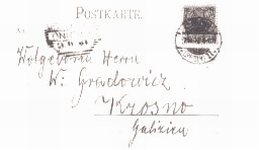 POSTKARTE.
Wolgeboren Herrn
W. Gradowicz
Krosno
Galizien